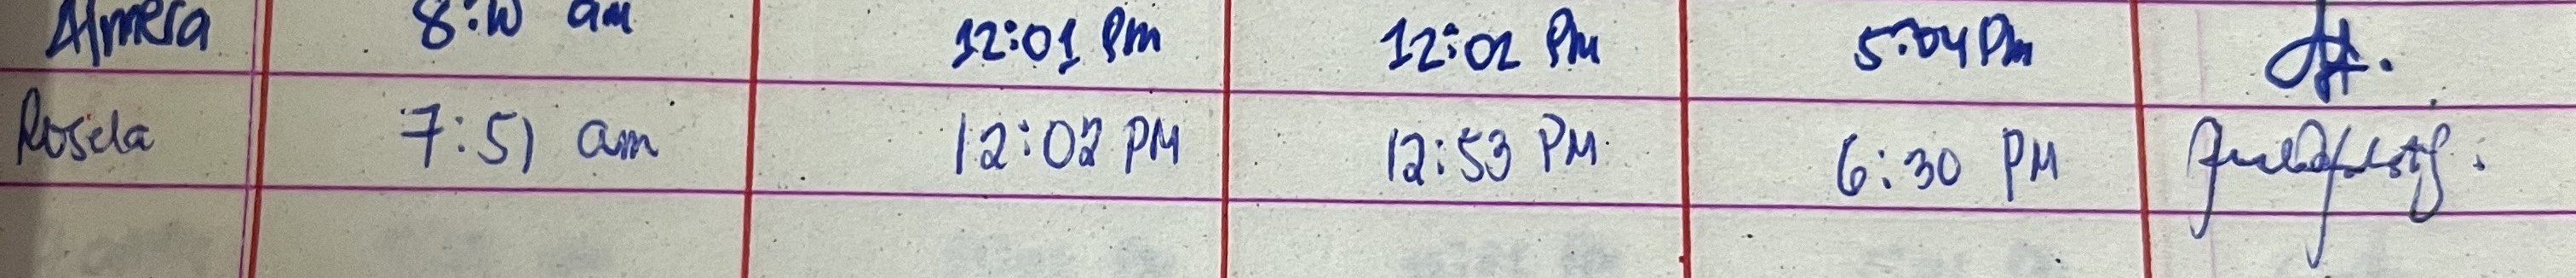 Almera 8:10 am 12:01 Pm 12:02 Pm 5:04 Pm
Rosela 7:51 am 12:02 PM 12:53 PM 6:30 PM